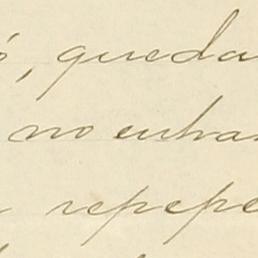 ó, queda
no entra
repepe